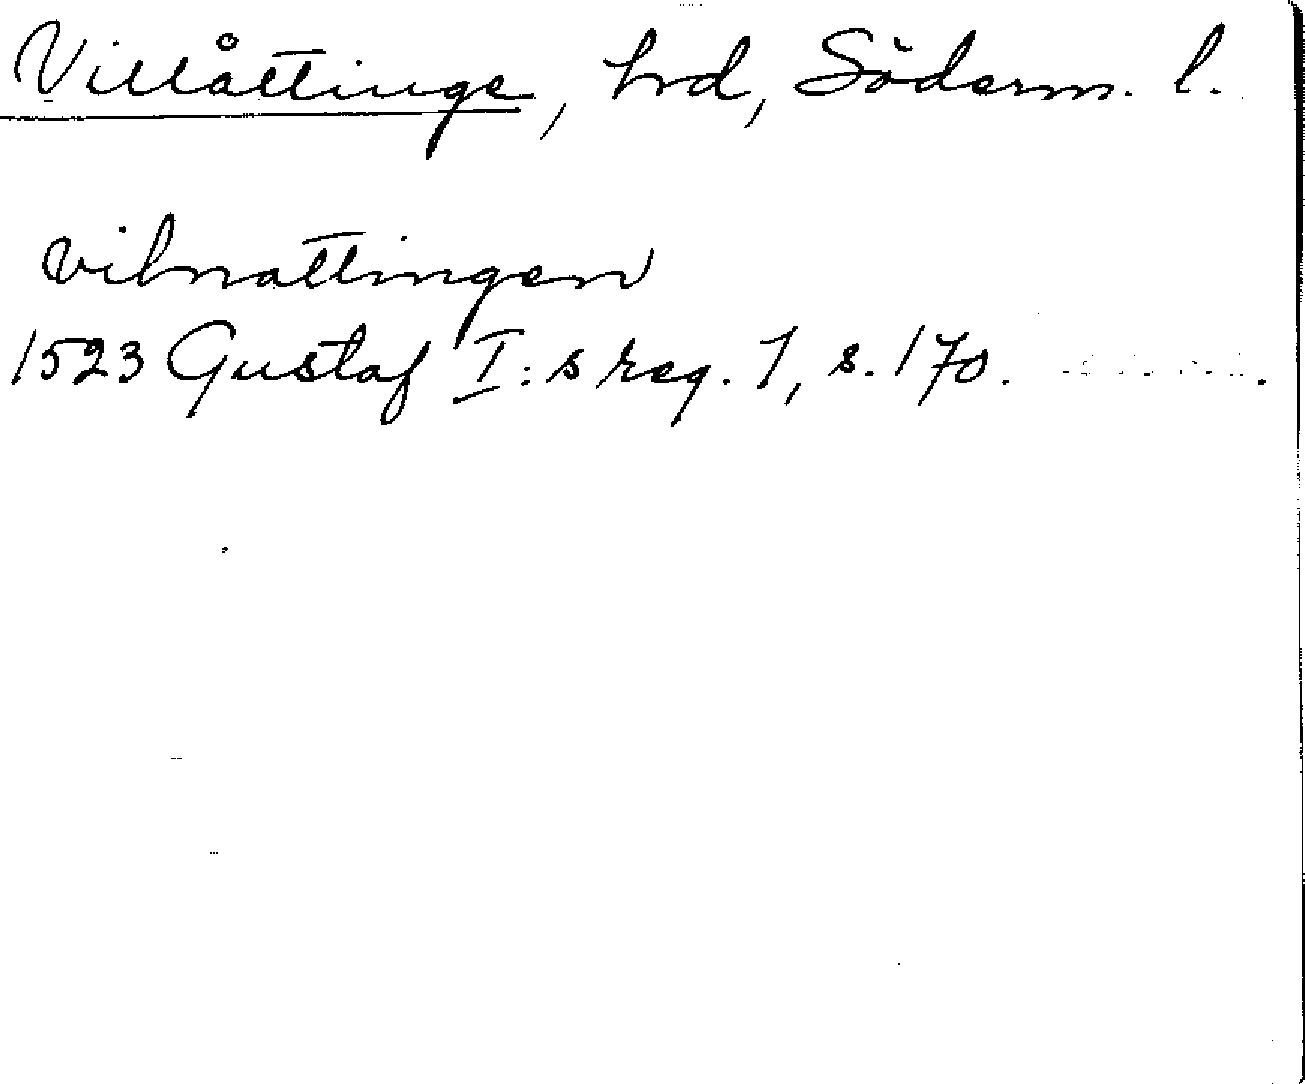 Villåttinge, hrd, Söderm. l.
vilnattingen
1523 Gustaf I:s reg. 1, s. 170.